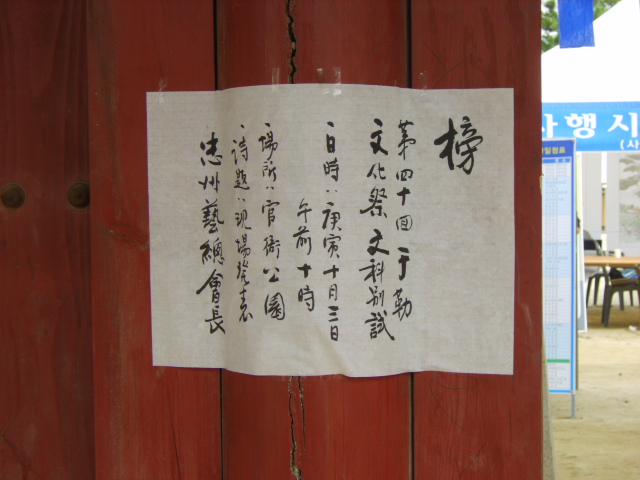 榜
第四十回 于勒
文化祭 文科別試
一. 日時:: 庚寅十月三日
午前十時
一. 場所:: 官衙公園
一. 詩題:: 現場發表
忠州藝總會長
사행시